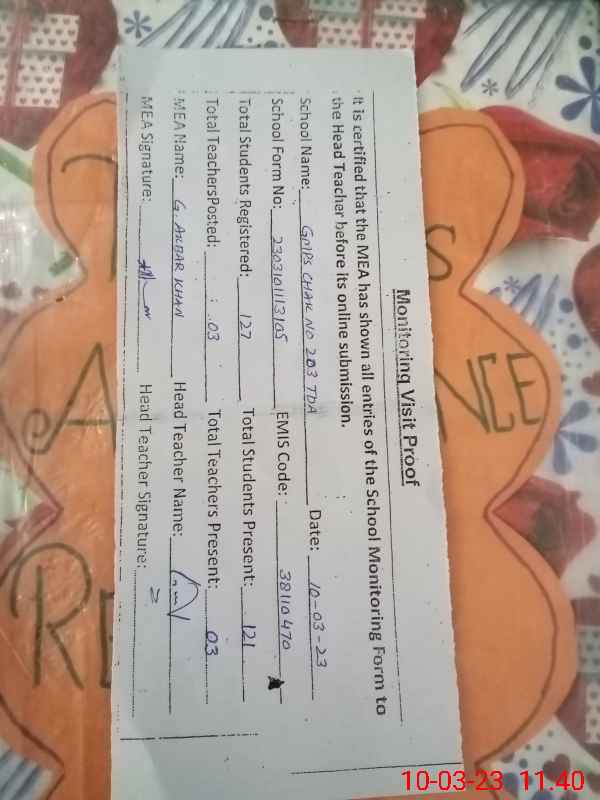 Monitoring Visit Proof
It is certified that the MEA has shown all entries of the School Monitoring Form to
the Head Teacher before its online submission.
School Name: GMPS CHAK NO 203 TDA Date: 10-03-23
School Form No: 2303101113105 EMIS Code: 38110470
Total Students Registered: 127 Total Students Present: 121
Total TeachersPosted: 03 Total Teachers Present: 03
MEA Name: G. AKBAR KHAN Head Teacher Name:
MEA Signature: Head Teacher Signature:
10-03-23 11.40